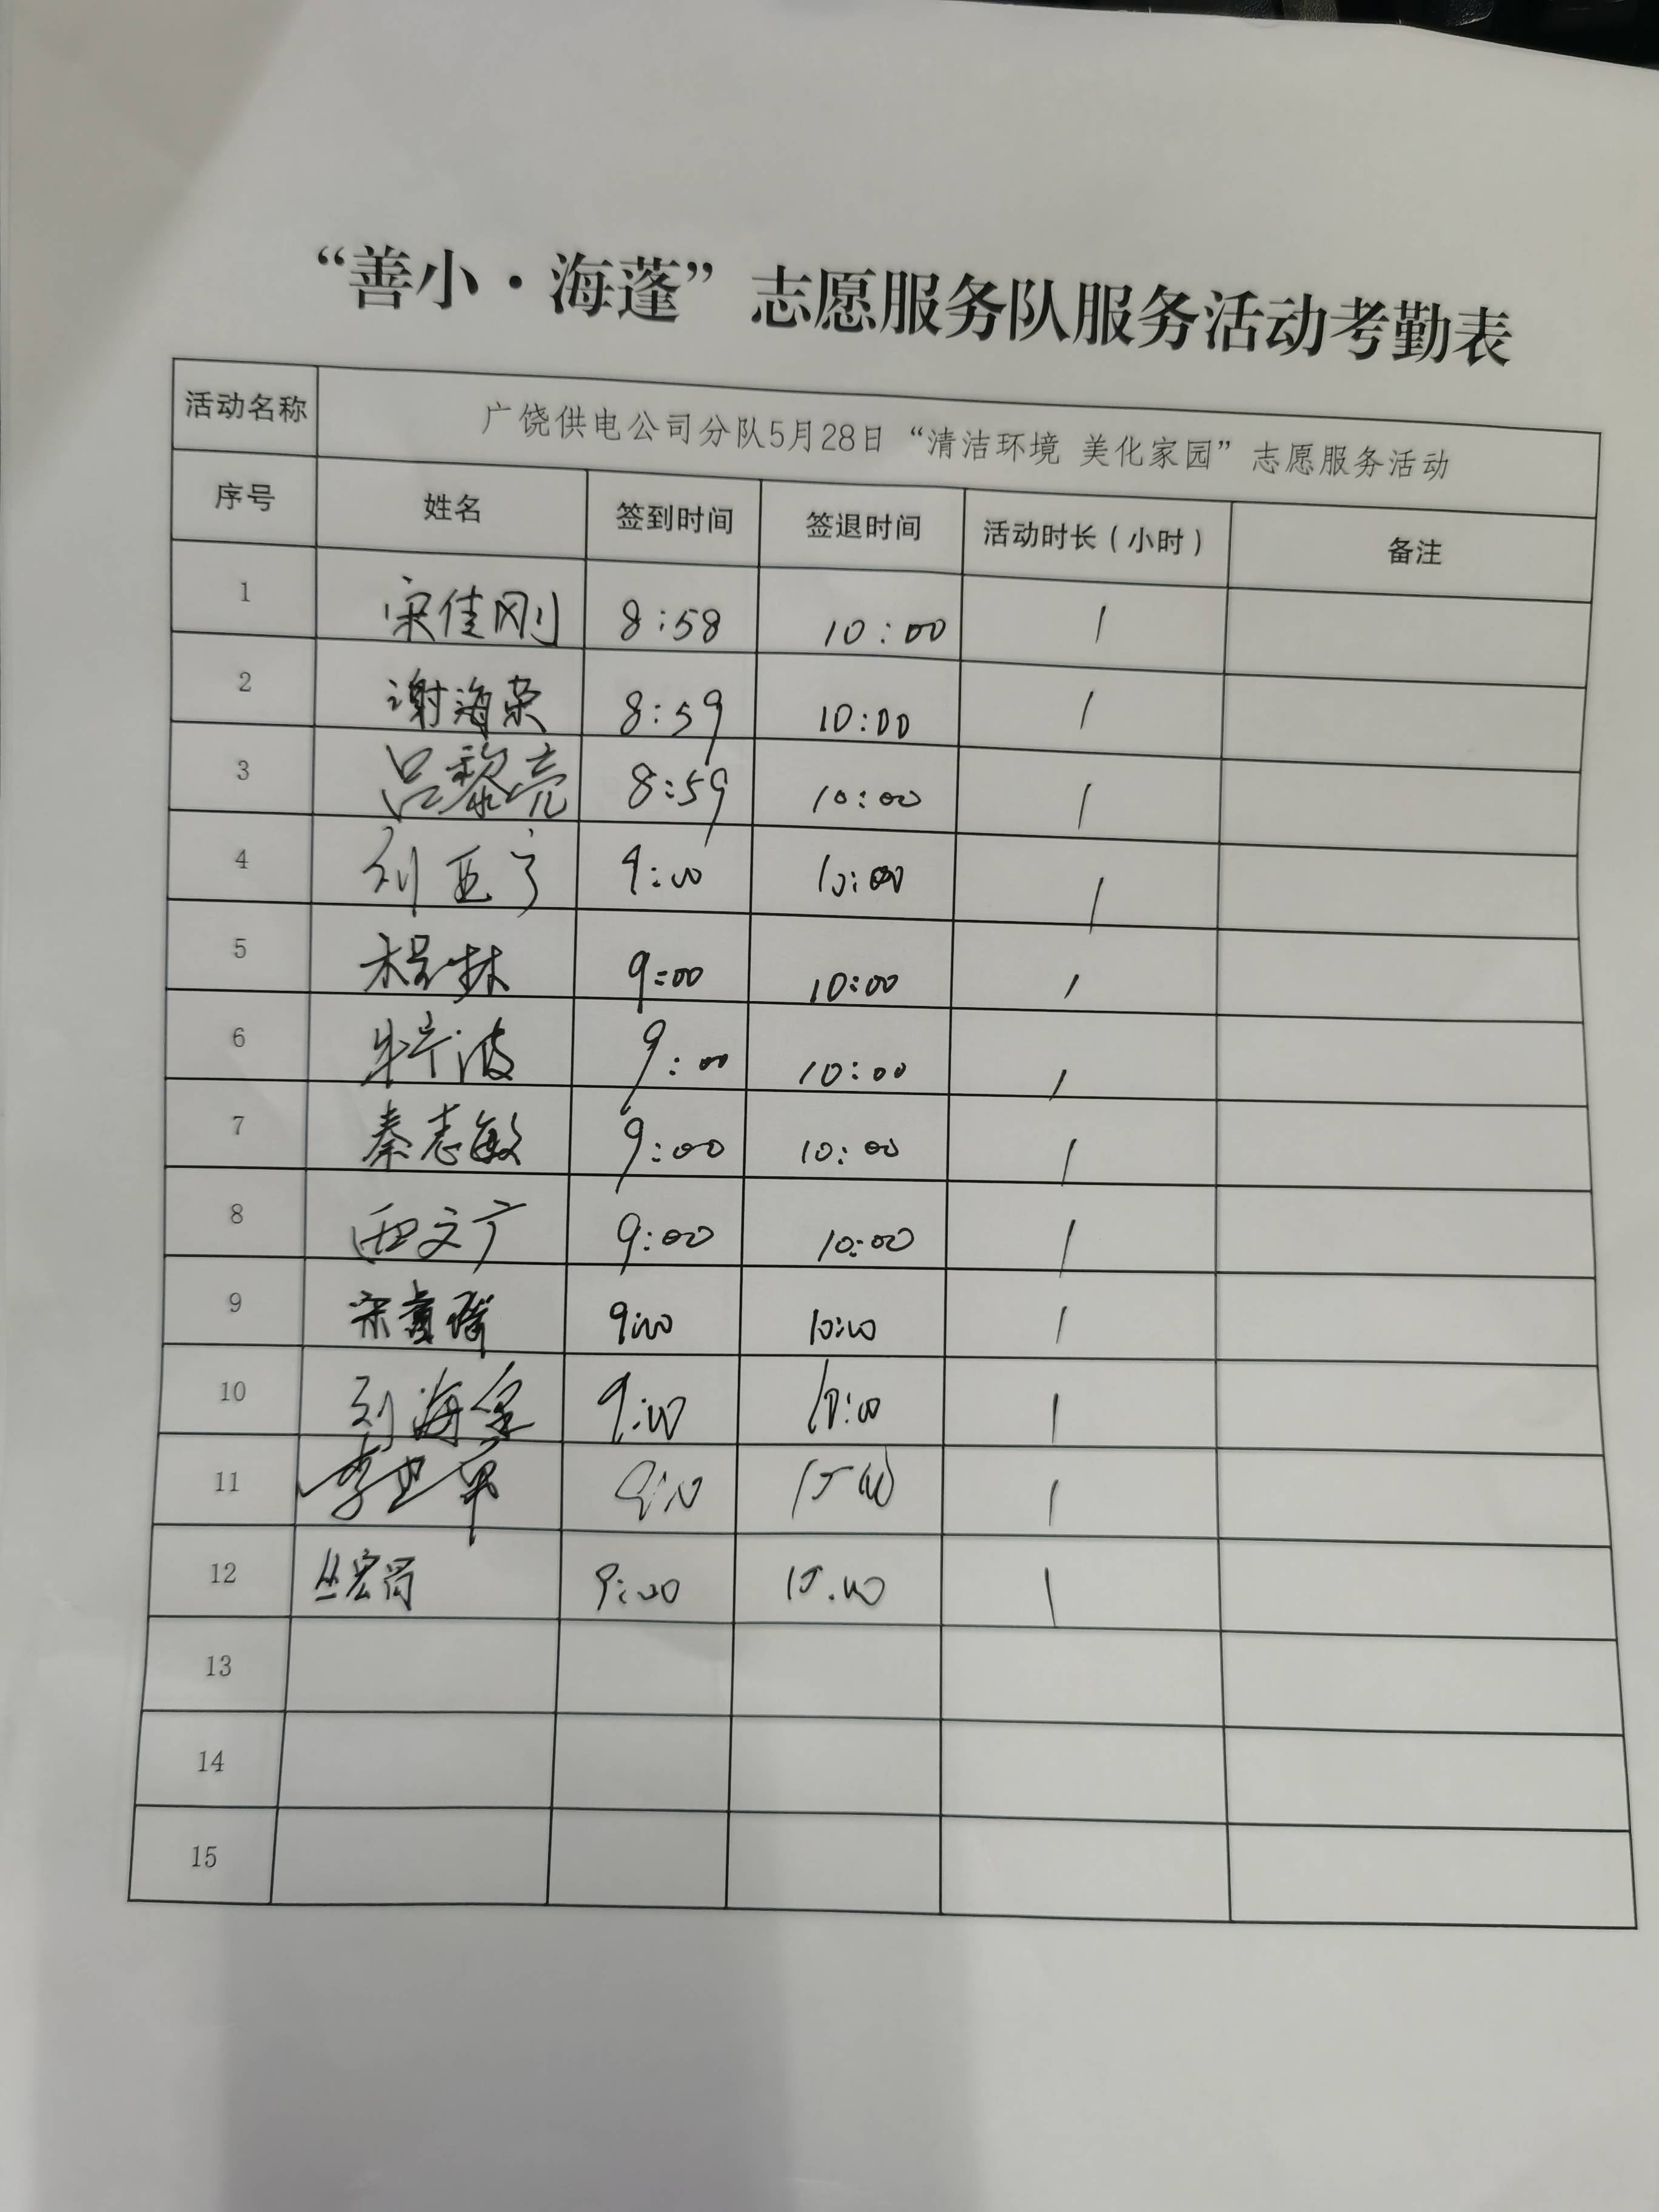 “善小·海蓬”志愿服务队服务活动考勤表
活动名称 广饶供电公司分队5月28日“清洁环境 美化家园”志愿服务活动
序号 姓名 签到时间 签退时间 活动时长（小时） 备注
1 宋佳刚 8:58 10:00 1
2 谢海荣 8:59 10:00 1
3 吕黎亮 8:59 10:00 1
4 刘亚宁 9:00 10:00 1
5 9:00 10:00 1
6 9:00 10:00 1
7 秦志敏 9:00 10:00 1
8 文广 9:00 10:00 1
9 9:00 10:00 1
10 刘海全 9:00 10:00 1
11 9:00 10:00 1
12 丛宏 9:00 10:00 1
13
14
15